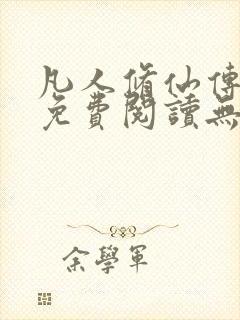 凡人脩仙傳
免費閱讀無
余學軍